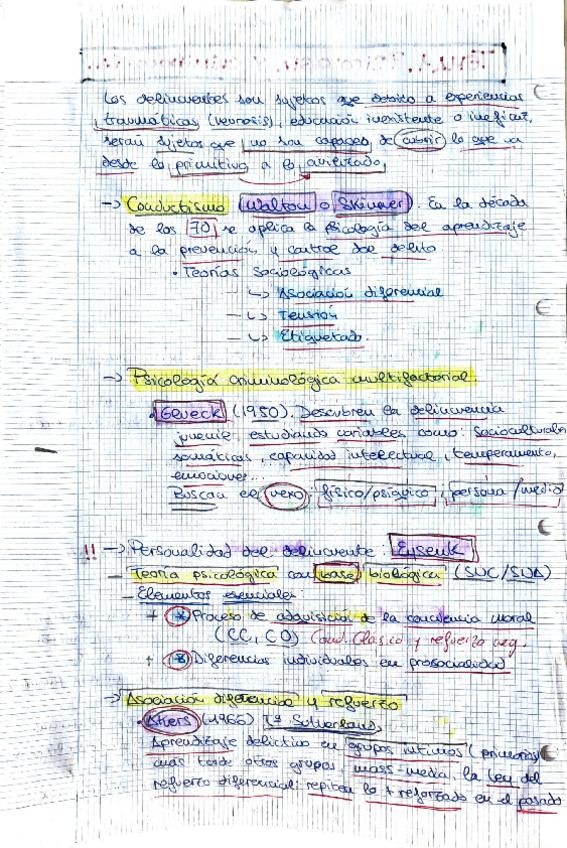 Los delincuentes son sujetos que debido a experiencias
traumáticas (neurosis), educación inexistente o ineficaz,
serán sujetos que no son capaces de cubrir lo que va
desde lo primitivo a lo civilizado
-> Conductismo (Walton o Skinner). En la década
de los 70 se aplica la psicología del aprendizaje
a la prevención y control del delito
• Teorías Sociológicas
↳ Asociación diferencial
↳ Tensión
↳ Etiquetado.
-> Psicología criminológica multifactorial.
• Glueck (1950). Descubren la delincuencia
juvenil estudiando variables como: Socioculturales
somáticas, capacidad intelectual, temperamento,
emociones...
Buscan el nexo: físico/psíquico, persona/medio
!! -> Personalidad del delincuente: Eysenk
- Teoría psicológica con base biológica (SUC/SUA)
- Elementos esenciales:
+ Proceso de adquisición de la conciencia moral
(CC, CO) Cond. Clásico y refuerzo neg.
+ Diferencias individuales en prosocialidad
-> Asociación diferencial y refuerzo
• Akers (1966) (1º Sutherland)
Aprendizaje delictivo en grupos íntimos (primarios)
más tarde otros grupos, mass-media. la Ley del
refuerzo diferencial: repiten lo + reforzado en el pasado